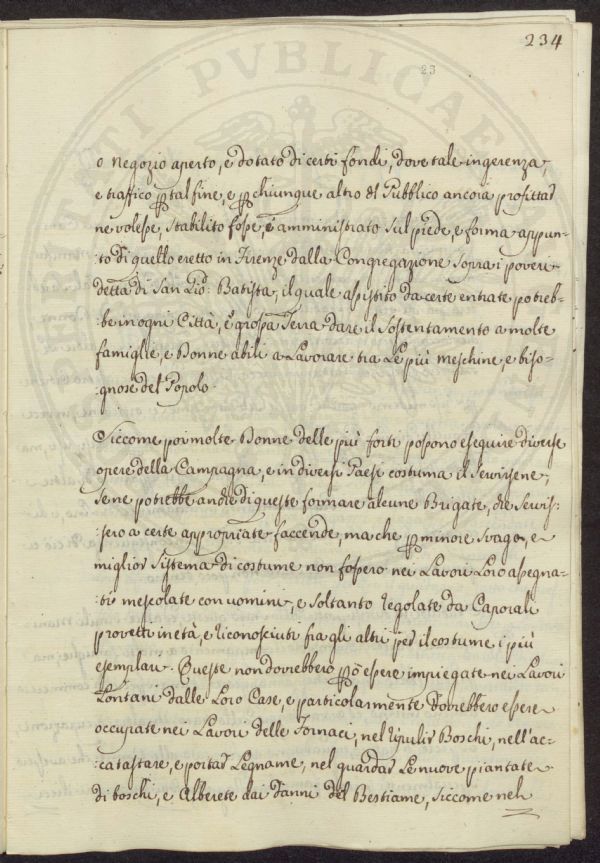 234
23
o Negozio aperto, e dotato di certi fondi, dove tale ingerenza,
e traffico p tal fine, e p chiunque altro del Pubblico ancora profittar
ne volesse, stabilito fosse, e amministrato sul piede, e forma appun-
to di quello eretto in Firenze dalla Congregazione sopra i poveri
detta di San Gio: Batista, il quale assistito da certe entrate potreb-
be in ogni Città, e grossa Terra dare il sostentamento a molte
famiglie, e Donne abili a Lavorare tra Le più meschine, e biso-
:gnose del Popolo.
Siccome poi molte Donne delle più forti possono eseguire diverse
opere della Campagna, e in diversi Paesi costuma il servirsene,
se ne potrebbe anche di queste formare alcune Brigate, che servis-
:sero a certe appropriate faccende, ma che p minore svago, e
miglior sistema di costume non fossero nei Lavori Loro assegna-
:ti mescolate con uomini, e soltanto regolate da Caporali
provetti in età, e riconosciuti fra gli altri per il costume i più
esemplari. Queste non dovrebbero pò essere impiegate nei Lavori
Lontani dalle Loro Case, e particolarmente dovrebbero essere
occupate nei Lavori delle Fornaci, nel ripulir Boschi, nell'ac-
:catastare, e portar Legname, nel guardar Le nuove piantate
di boschi, e Alberete dai danni del Bestiame, siccome nel
PVBLICAE